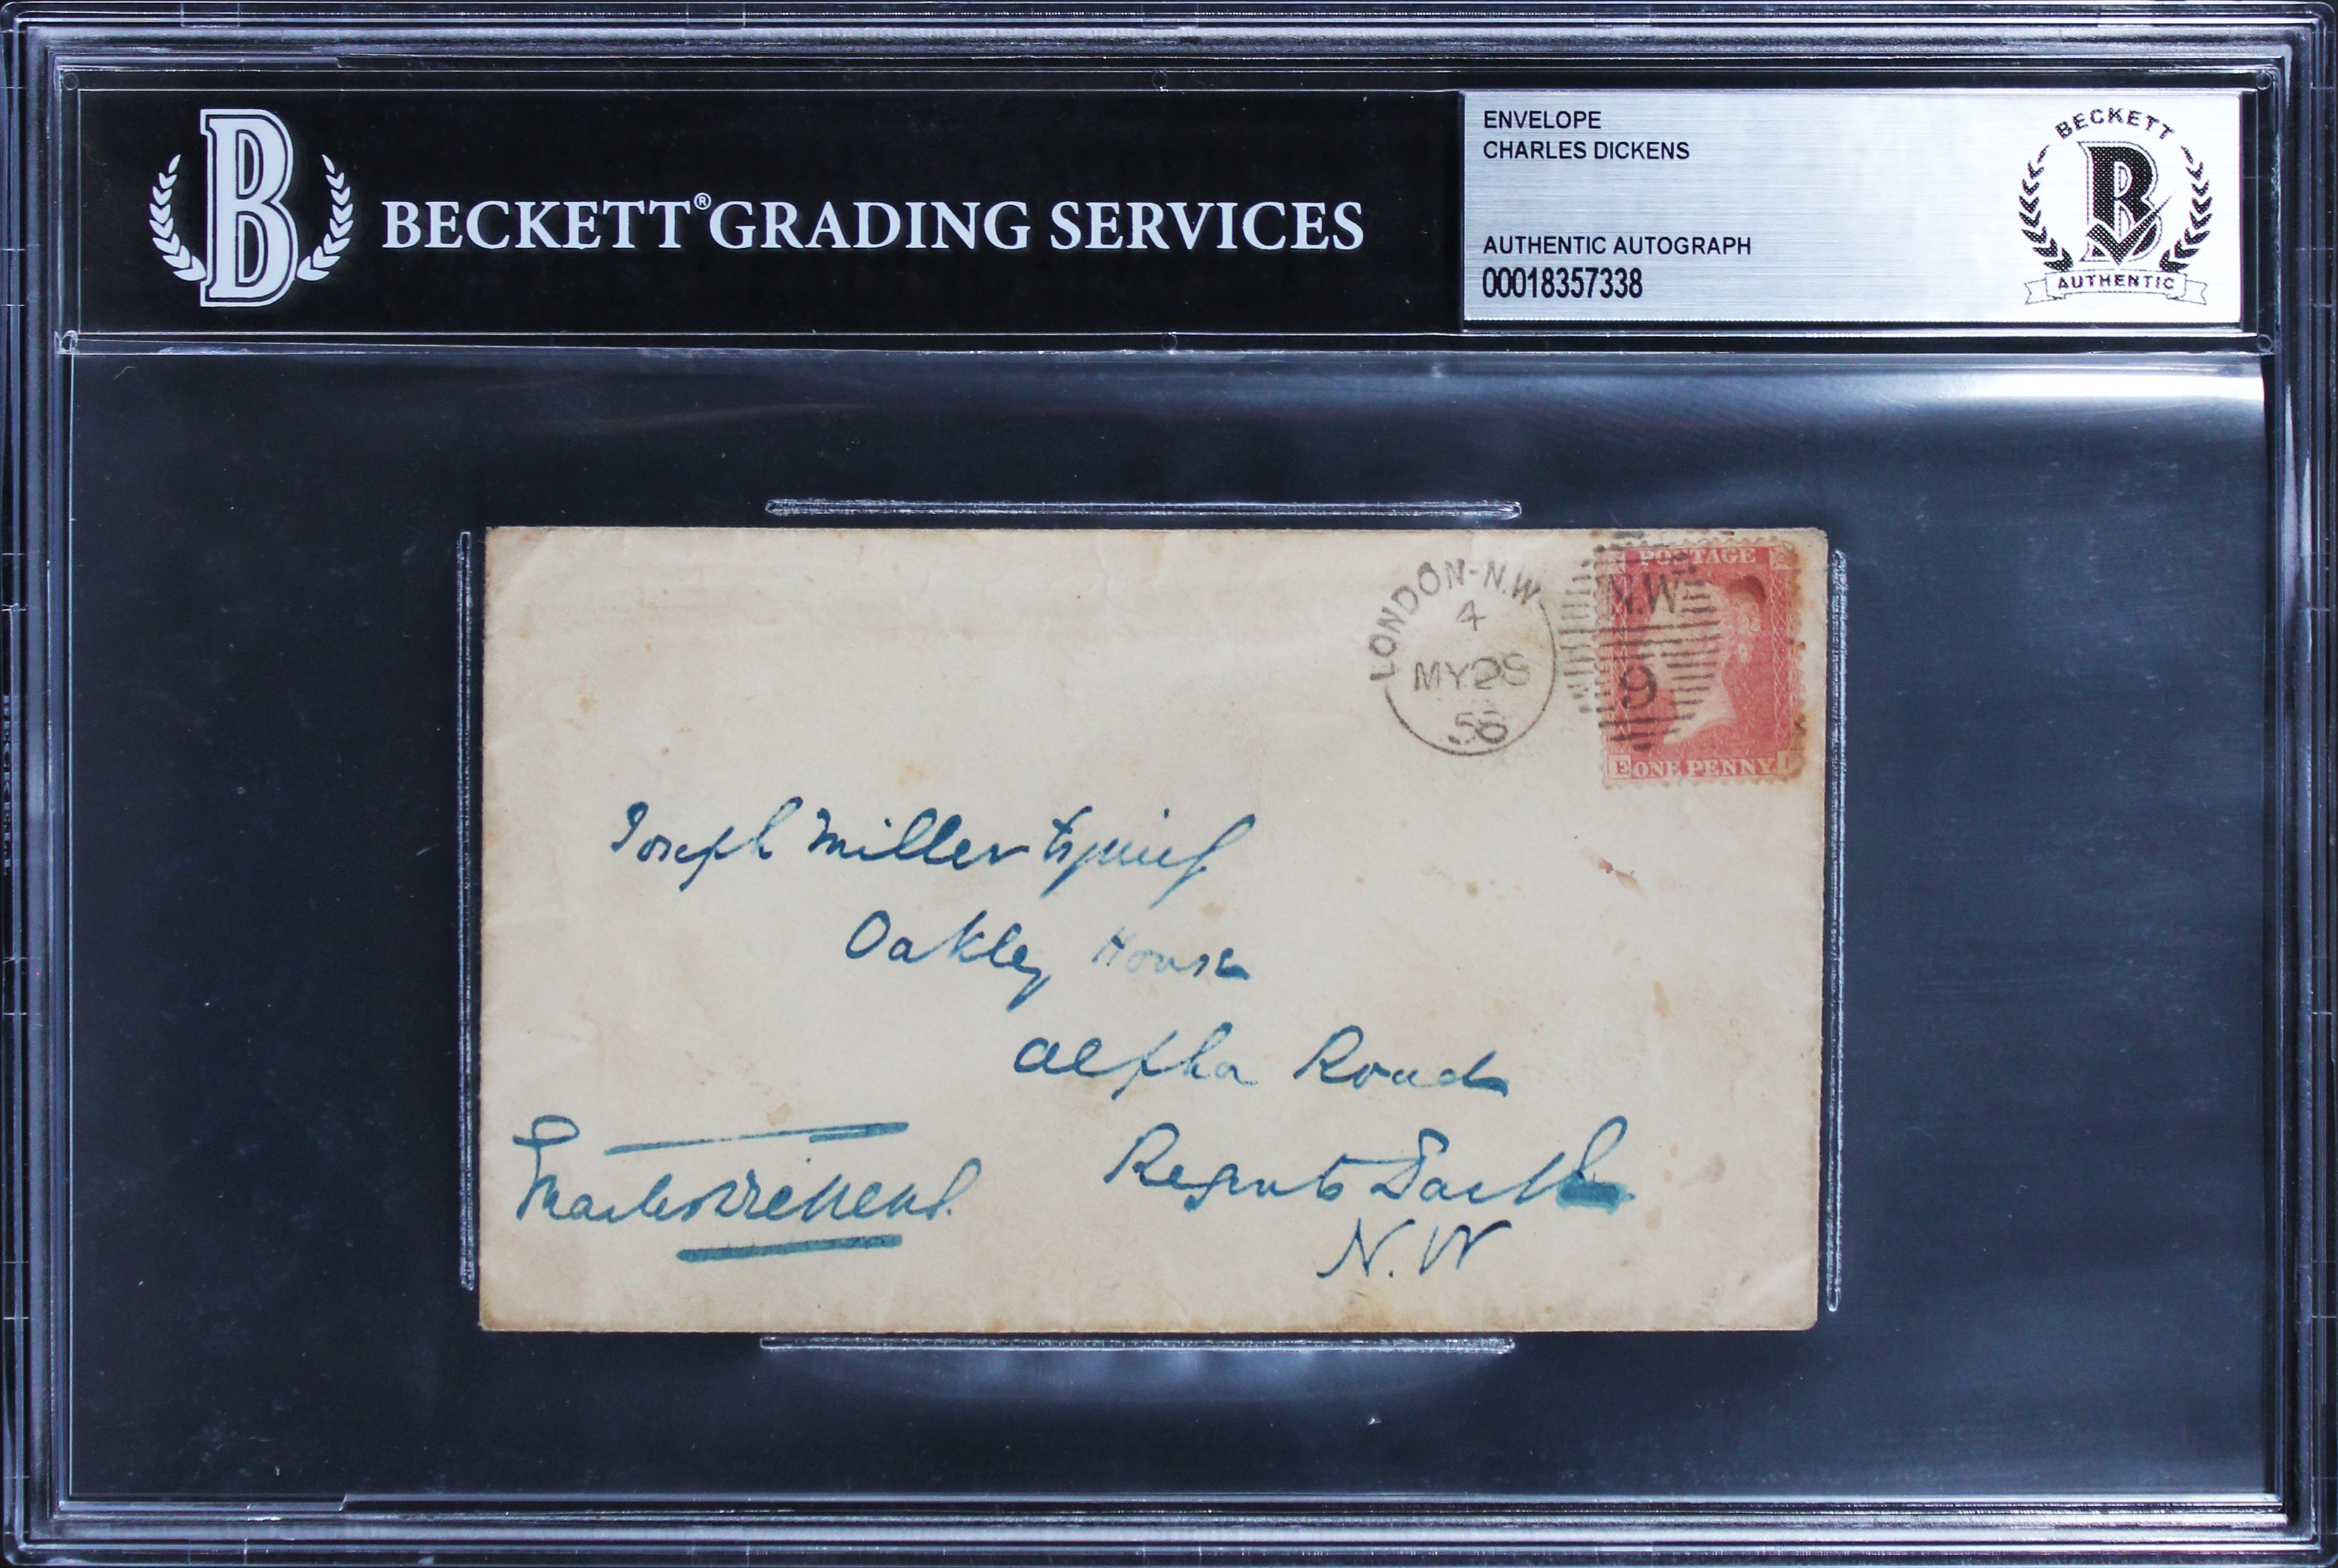 BECKETT® GRADING SERVICES
ENVELOPE
CHARLES DICKENS
AUTHENTIC AUTOGRAPH
00018357338
BECKETT
B
AUTHENTIC
B
LONDON-N.W
4
MY 28
58
POSTAGE
N.W.
9
E ONE PENNY
Joseph Miller Esquire
Oakley House
Alpha Road
Regents Park
N.W
Charles Dickens.